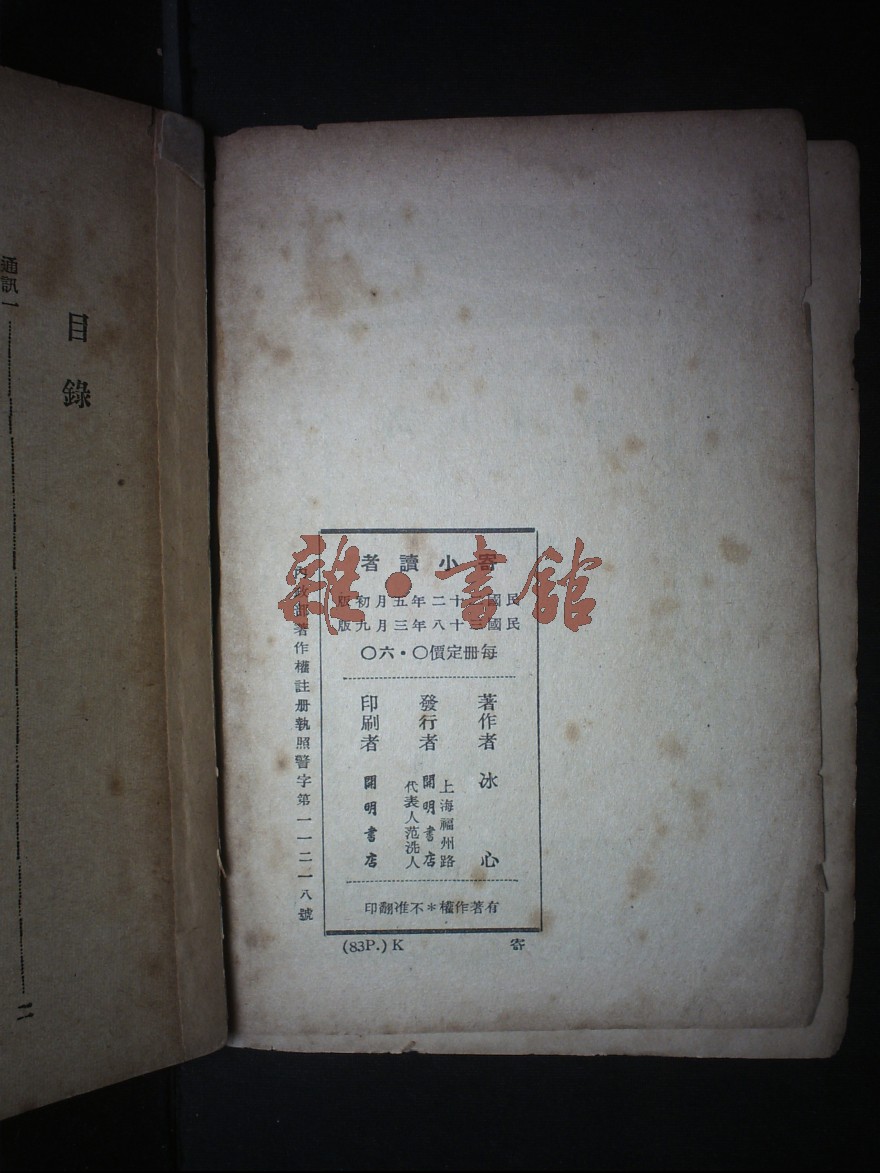 雜·書館
寄小讀者
民國三十二年五月初版
民國三十八年三月九版
每冊定價〇・六〇
著作者 冰心
發行者 上海福州路
開明書店
代表人范洗人
印刷者 開明書店
有著作權*不准翻印
內政部著作權註冊執照警字第一一二一八號
寄
(83P.) K
目錄
通訊一